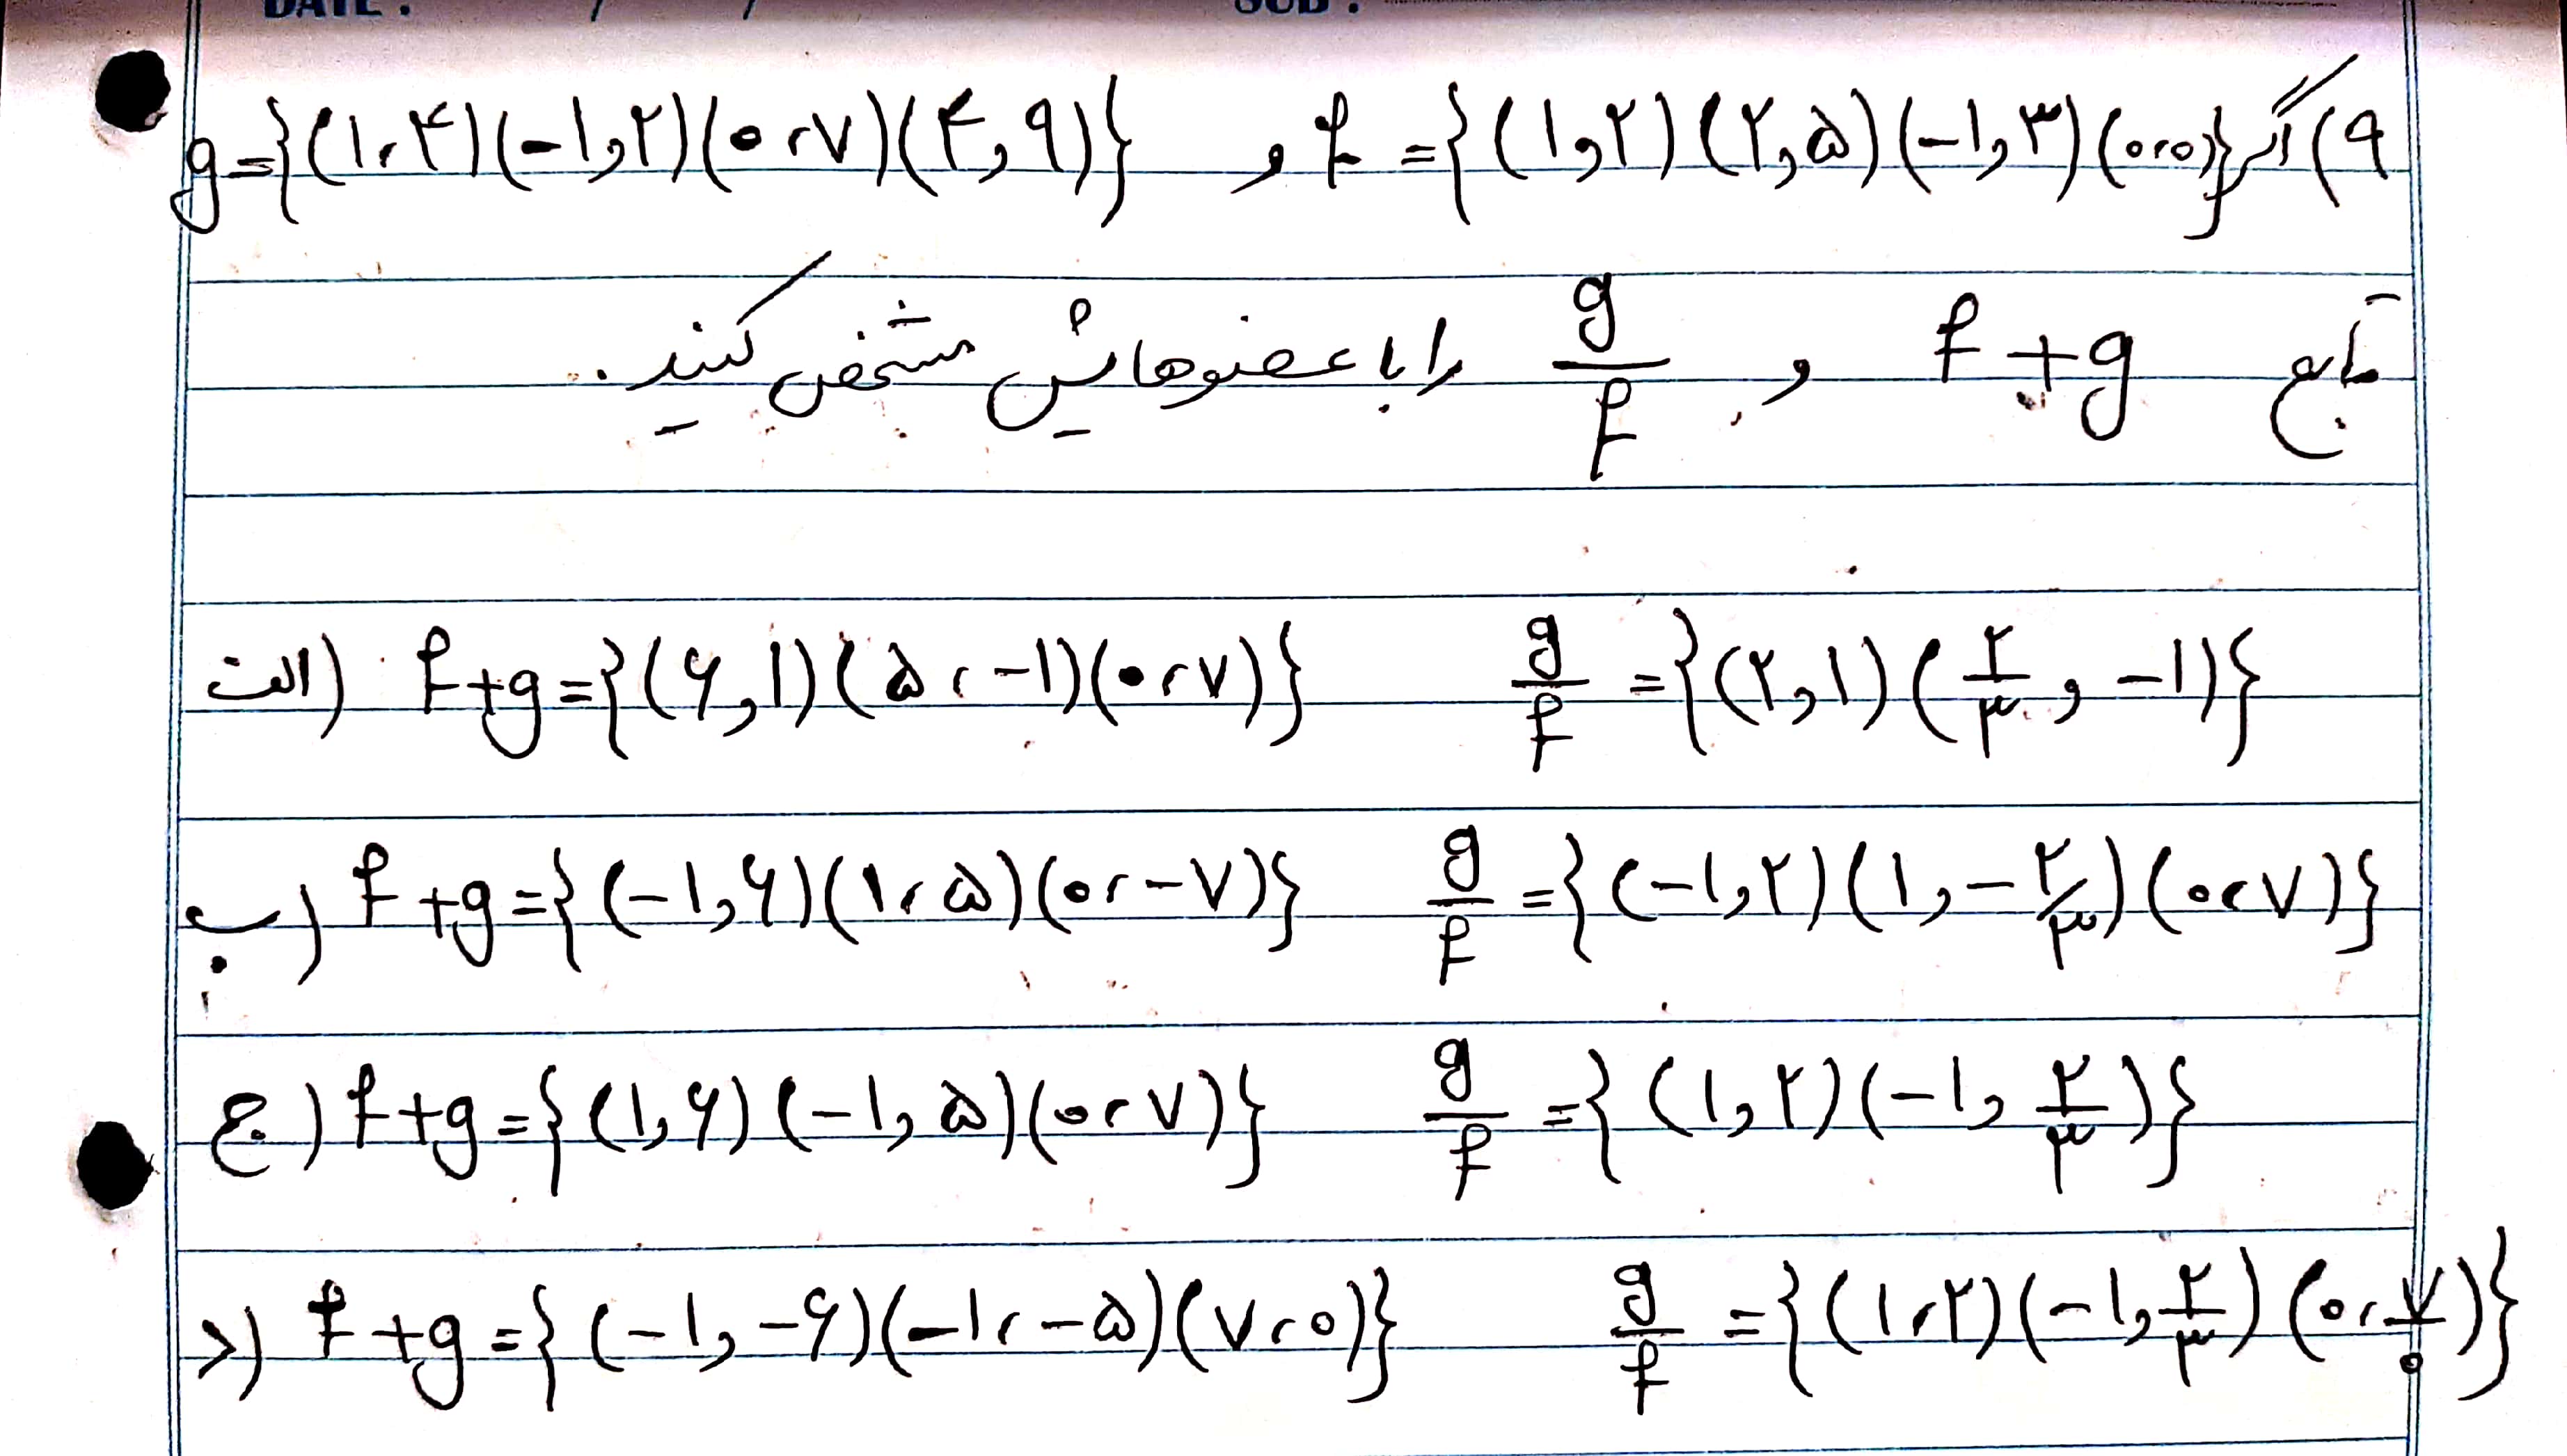 DATE : / / SUB :
۹) اگر f = {(۱,۲) (۲,۵) (-۱,۳) (۰,۰)} و g = {(۱,۴) (-۱,۲) (۰,۷) (۴,۹)}
تابع f + g و g/f را با عضوهایش مشخص کنید.
الف) f + g = {(۶,۱) (۵,-۱) (۰,۷)} g/f = {(۲,۱) (۲/۳,-۱)}
ب) f + g = {(-۱,۶) (۱,۵) (۰,-۷)} g/f = {(-۱,۲) (۱,-۲/۳) (۰,۷)}
ج) f + g = {(۱,۶) (-۱,۵) (۰,۷)} g/f = {(۱,۲) (-۱,۲/۳)}
د) f + g = {(-۱,-۶) (-۱,-۵) (۷,۰)} g/f = {(۱,۲) (-۱,۲/۳) (۰,۷/۰)}